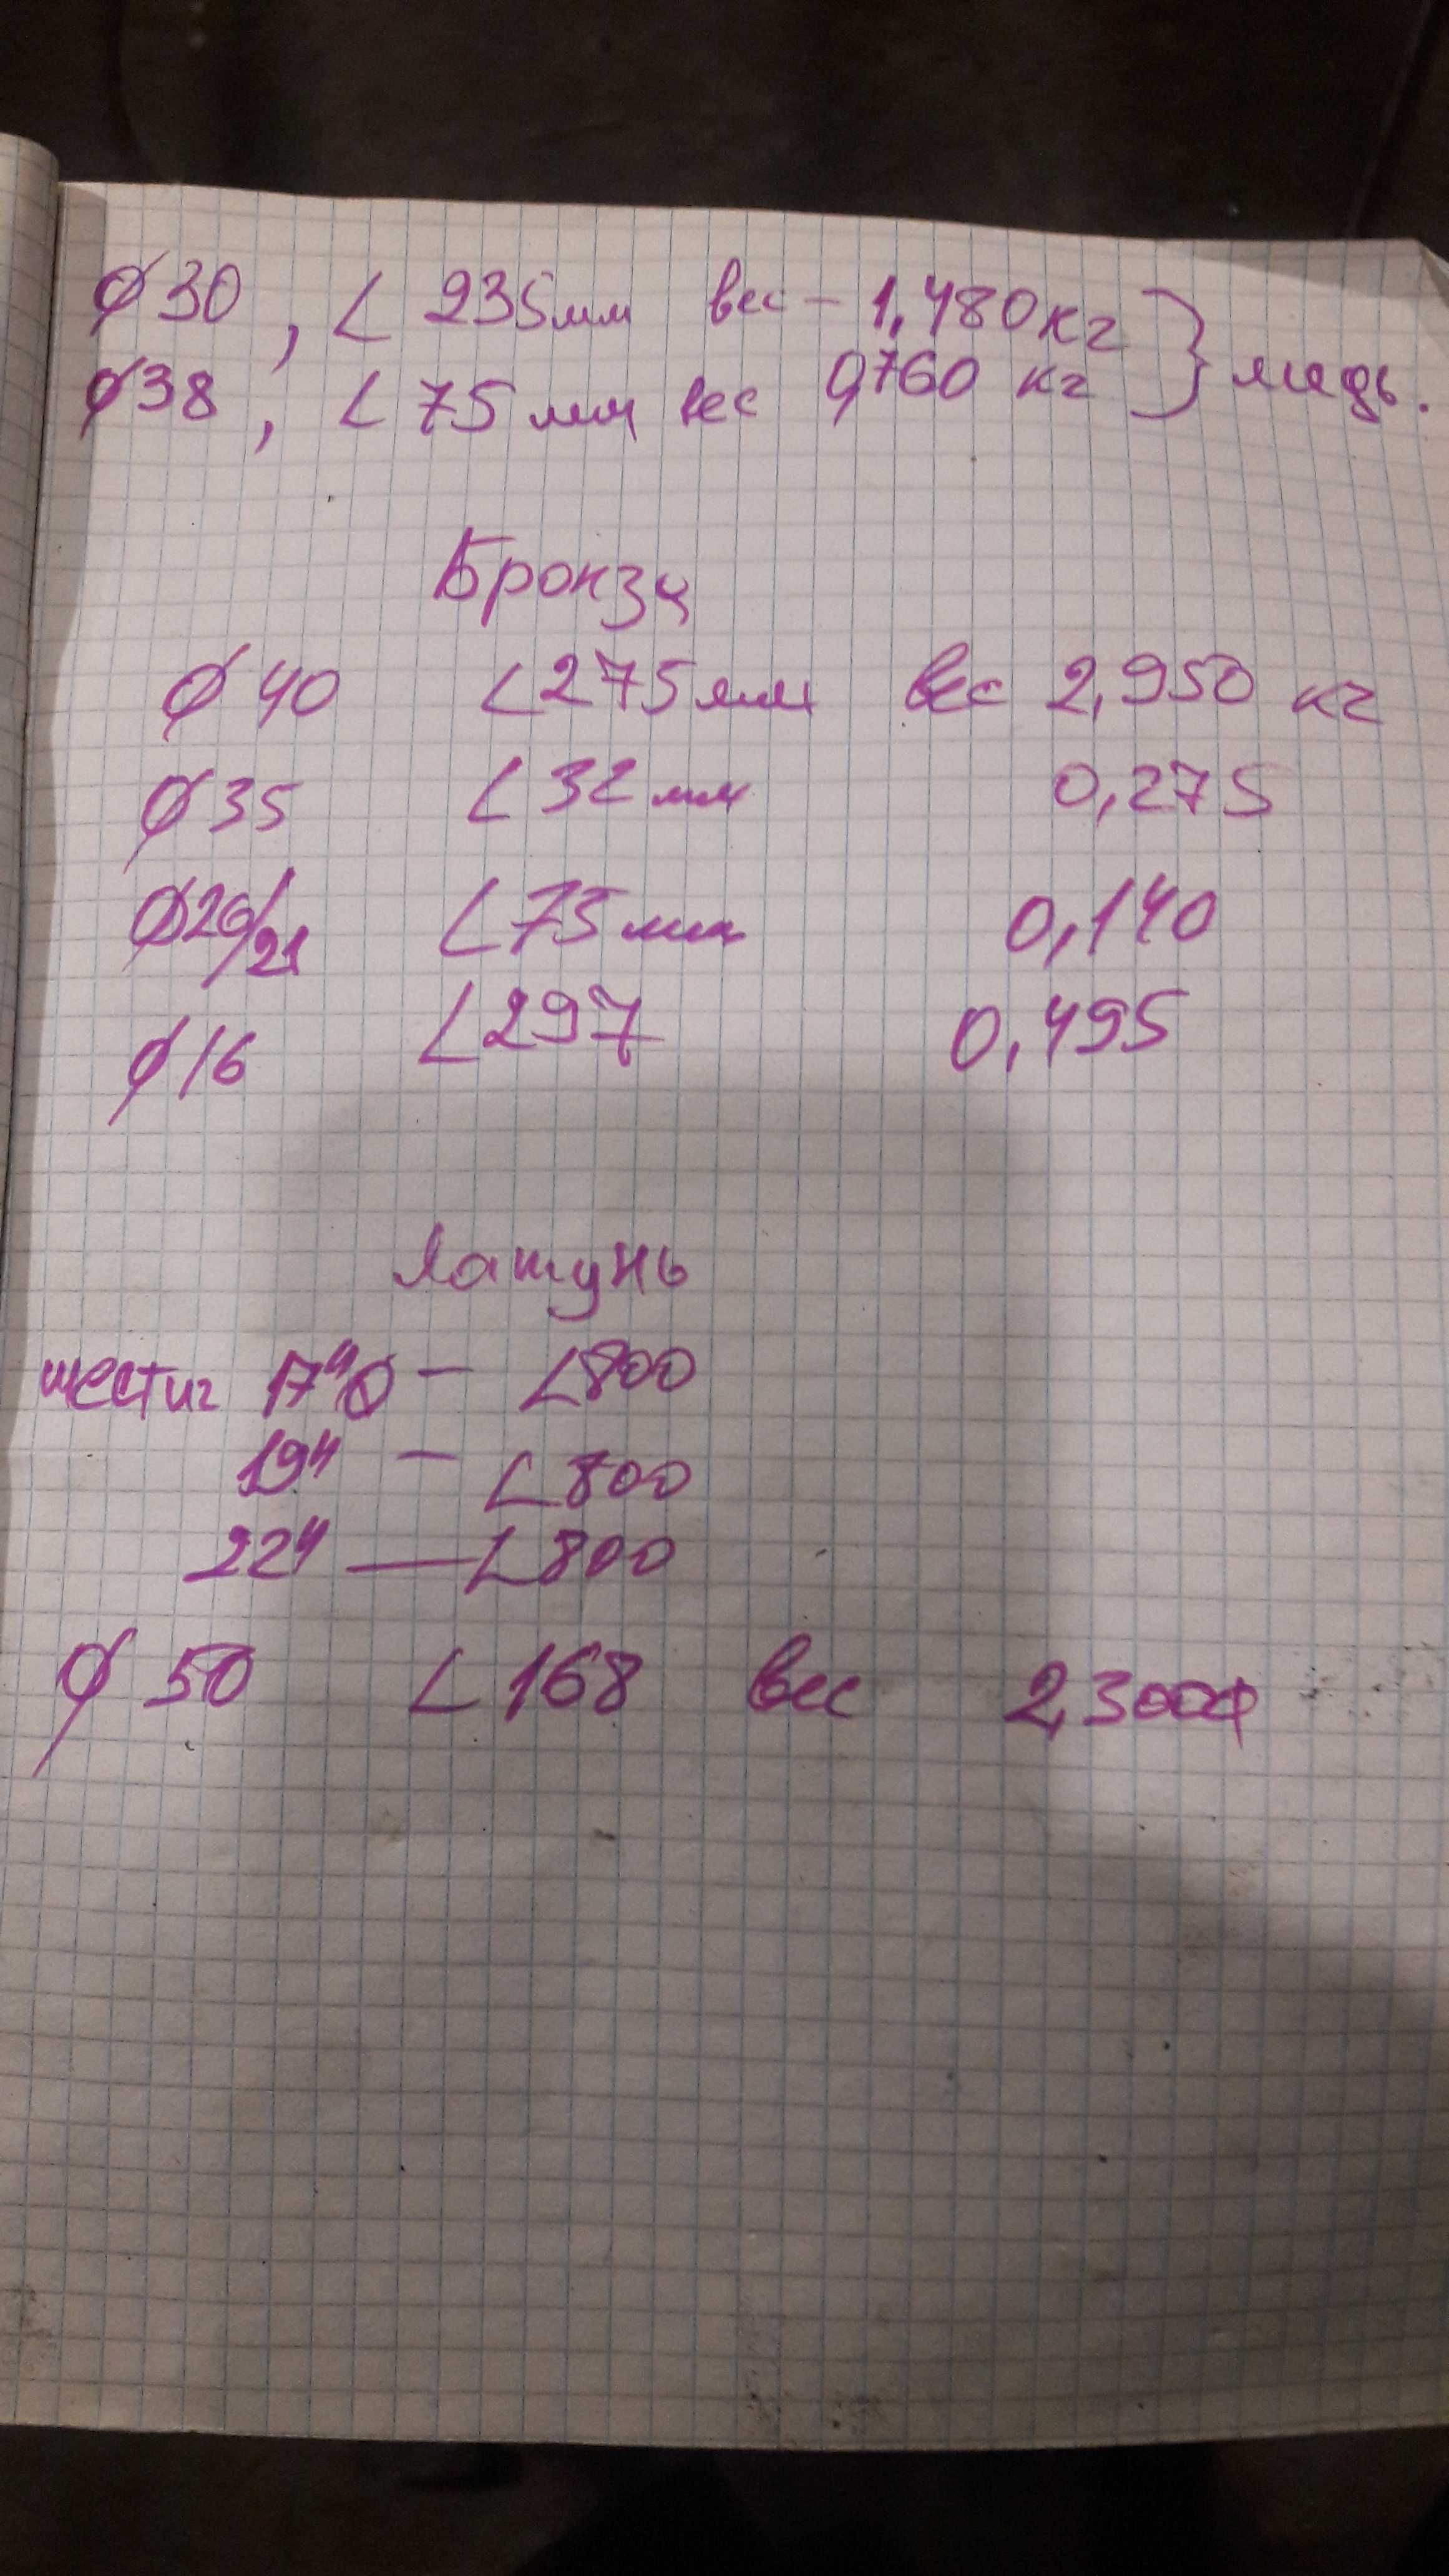 ⌀30, L 235мм вес - 1,480кг } медь.
⌀38, L 75 мм вес 0,760 кг
Бронза
⌀ 40 L 275мм вес 2,950 кг
⌀ 35 L 32 мм 0,275
⌀ 26/21 L 75 мм 0,140
⌀ 16 L 297 0,495
Латунь
шестиг 17" - L 800
19" - L 800
22" - L 800
⌀ 50 L 168 вес 2,300